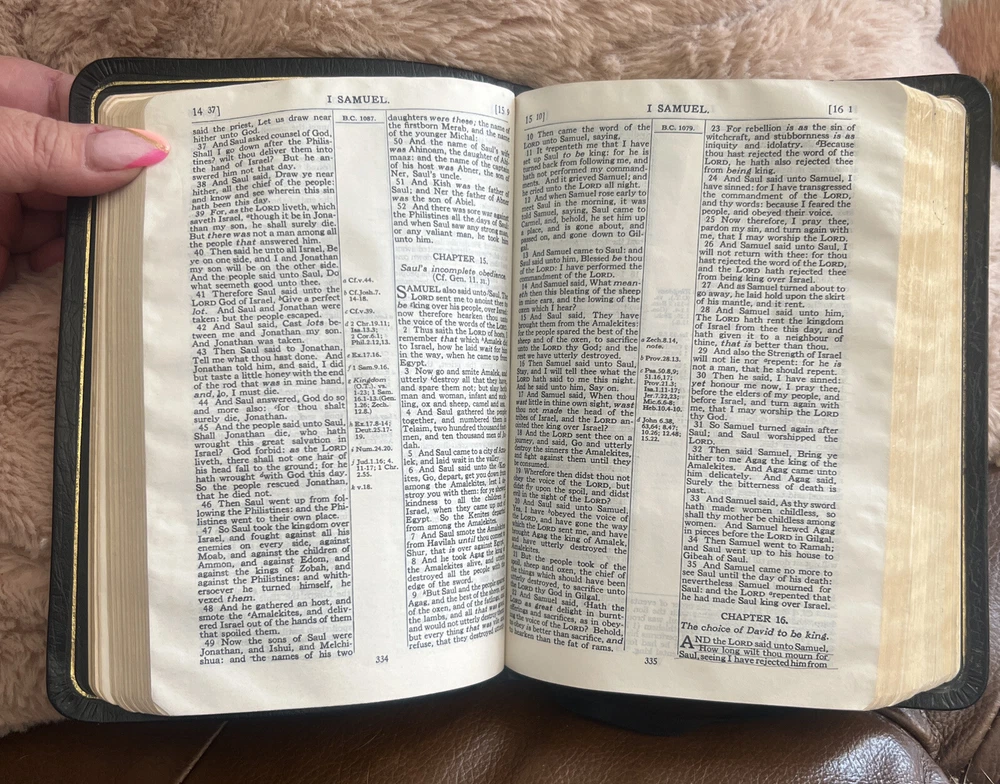 14 37]
I SAMUEL.
[15 9
said the priest, Let us draw near
hither unto God.
37 And Saul asked counsel of God,
Shall I go down after the Philis-
tines? wilt thou deliver them into
the hand of Israel? But he an-
swered him not that day.
38 And Saul said, Draw ye near
hither, all the chief of the people:
and know and see wherein this sin
hath been this day.
39 For, as the LORD liveth, which
saveth Israel, though it be in Jona-
than my son, he shall surely die.
But there was not a man among all
the people that answered him.
40 Then said he unto all Israel, Be
ye on one side, and I and Jonathan
my son will be on the other side.
And the people said unto Saul, Do
what seemeth good unto thee.
41 Therefore Saul said unto the
LORD God of Israel, Give a perfect
lot. And Saul and Jonathan were
taken: but the people escaped.
42 And Saul said, Cast lots be-
tween me and Jonathan my son.
And Jonathan was taken.
43 Then Saul said to Jonathan,
Tell me what thou hast done. And
Jonathan told him, and said, I did
but taste a little honey with the end
of the rod that was in mine hand,
and, lo, I must die.
44 And Saul answered, God do so
and more also: for thou shalt
surely die, Jonathan.
45 And the people said unto Saul,
Shall Jonathan die, who hath
wrought this great salvation in
Israel? God forbid: as the LORD
liveth, there shall not one hair of
his head fall to the ground; for he
hath wrought with God this day.
So the people rescued Jonathan,
that he died not.
46 Then Saul went up from fol-
lowing the Philistines: and the Phi-
listines went to their own place.
47 So Saul took the kingdom over
Israel, and fought against all his
enemies on every side, against
Moab, and against the children of
Ammon, and against Edom, and
against the kings of Zobah, and
against the Philistines: and whith-
ersoever he turned himself, he
vexed them.
48 And he gathered an host, and
smote the Amalekites, and deliv-
ered Israel out of the hands of them
that spoiled them.
49 Now the sons of Saul were
Jonathan, and Ishui, and Melchi-
shua: and the names of his two
B.C. 1087.
a Cf.v.44.
b Cf.Josh.7.
14-18.
c Cf.v.39.
d 2 Chr.19.11;
Isa.13.3;
1 Cor.6.1;
Phil.2.12,13.
e Ex.17.16.
f 1 Sam.9.16.
g Kingdom
(O.T.). vs.
1-23; 1 Sam.
16.1-13. (Gen.
1.26; Zech.
12.8.)
h Ex.17.8-14;
Deut.25.17-
19.
i Num.24.20.
j Jud.1.16; 4.
11-17; 1 Chr.
2.55.
k v.18.
daughters were these; the name of
the firstborn Merab, and the name
of the younger Michal:
50 And the name of Saul's wife
was Ahinoam, the daughter of Ahi-
maaz: and the name of the captain
of his host was Abner, the son of
Ner, Saul's uncle.
51 And Kish was the father of
Saul; and Ner the father of Abner
was the son of Abiel.
52 And there was sore war against
the Philistines all the days of Saul:
and when Saul saw any strong man,
or any valiant man, he took him
unto him.
CHAPTER 15.
Saul's incomplete obedience.
(Cf. Gen. 11. 31.)
SAMUEL also said unto Saul, The
LORD sent me to anoint thee to
be king over his people, over Israel:
now therefore hearken thou unto
the voice of the words of the LORD.
2 Thus saith the LORD of hosts, I
remember that which Amalek did
to Israel, how he laid wait for him
in the way, when he came up from
Egypt.
3 Now go and smite Amalek, and
utterly destroy all that they have,
and spare them not; but slay both
man and woman, infant and suck-
ling, ox and sheep, camel and ass.
4 And Saul gathered the people
together, and numbered them in
Telaim, two hundred thousand foot-
men, and ten thousand men of Ju-
dah.
5 And Saul came to a city of Ama-
lek, and laid wait in the valley.
6 And Saul said unto the Ken-
ites, Go, depart, get you down from
among the Amalekites, lest I de-
stroy you with them: for ye shewed
kindness to all the children of
Israel, when they came up out of
Egypt. So the Kenites departed
from among the Amalekites.
7 And Saul smote the Amalekites
from Havilah until thou comest to
Shur, that is over against Egypt.
8 And he took Agag the king of
the Amalekites alive, and utterly
destroyed all the people with the
edge of the sword.
9 But Saul and the people spared
Agag, and the best of the sheep, and
of the oxen, and of the fatlings, and
the lambs, and all that was good,
and would not utterly destroy them:
but every thing that was vile and
refuse, that they destroyed utterly.
334
15 10]
I SAMUEL.
[16 1
10 Then came the word of the
LORD unto Samuel, saying,
11 It repenteth me that I have
set up Saul to be king: for he is
turned back from following me, and
hath not performed my command-
ments. And it grieved Samuel; and
he cried unto the LORD all night.
12 And when Samuel rose early to
meet Saul in the morning, it was
told Samuel, saying, Saul came to
Carmel, and, behold, he set him up
a place, and is gone about, and
passed on, and gone down to Gil-
gal.
13 And Samuel came to Saul: and
Saul said unto him, Blessed be thou
of the LORD: I have performed the
commandment of the LORD.
14 And Samuel said, What mean-
eth then this bleating of the sheep
in mine ears, and the lowing of the
oxen which I hear?
15 And Saul said, They have
brought them from the Amalekites:
for the people spared the best of the
sheep and of the oxen, to sacrifice
unto the LORD thy God; and the
rest we have utterly destroyed.
16 Then Samuel said unto Saul,
Stay, and I will tell thee what the
LORD hath said to me this night.
And he said unto him, Say on.
17 And Samuel said, When thou
wast little in thine own sight, wast
thou not made the head of the
tribes of Israel, and the LORD an-
ointed thee king over Israel?
18 And the LORD sent thee on a
journey, and said, Go and utterly
destroy the sinners the Amalekites,
and fight against them until they
be consumed.
19 Wherefore then didst thou not
obey the voice of the LORD, but
didst fly upon the spoil, and didst
evil in the sight of the LORD?
20 And Saul said unto Samuel,
Yea, I have obeyed the voice of
the LORD, and have gone the way
which the LORD sent me, and have
brought Agag the king of Amalek,
and have utterly destroyed the
Amalekites.
21 But the people took of the
spoil, sheep and oxen, the chief of
the things which should have been
utterly destroyed, to sacrifice unto
the LORD thy God in Gilgal.
22 And Samuel said, Hath the
LORD as great delight in burnt
offerings and sacrifices, as in obey-
ing the voice of the LORD? Behold,
to obey is better than sacrifice, and
to hearken than the fat of rams.
B.C. 1079.
a Zech.8.14,
note.
b Prov.28.13.
c Psa.50.8,9;
51.16,17;
Prov.21.3;
Isa.1.11-17;
Jer.7.22,23;
Mic.6.6-8;
Heb.10.4-10.
d John 6.38,
53,64; 8.47;
10.26; 12.48;
15.22.
23 For rebellion is as the sin of
witchcraft, and stubbornness is as
iniquity and idolatry. Because
thou hast rejected the word of the
LORD, he hath also rejected thee
from being king.
24 And Saul said unto Samuel, I
have sinned: for I have transgressed
the commandment of the LORD,
and thy words: because I feared the
people, and obeyed their voice.
25 Now therefore, I pray thee,
pardon my sin, and turn again with
me, that I may worship the LORD.
26 And Samuel said unto Saul, I
will not return with thee: for thou
hast rejected the word of the LORD,
and the LORD hath rejected thee
from being king over Israel.
27 And as Samuel turned about to
go away, he laid hold upon the skirt
of his mantle, and it rent.
28 And Samuel said unto him,
The LORD hath rent the kingdom
of Israel from thee this day, and
hath given it to a neighbour of
thine, that is better than thou.
29 And also the Strength of Israel
will not lie nor repent: for he is
not a man, that he should repent.
30 Then he said, I have sinned:
yet honour me now, I pray thee,
before the elders of my people, and
before Israel, and turn again with
me, that I may worship the LORD
thy God.
31 So Samuel turned again after
Saul; and Saul worshipped the
LORD.
32 Then said Samuel, Bring ye
hither to me Agag the king of the
Amalekites. And Agag came unto
him delicately. And Agag said,
Surely the bitterness of death is
past.
33 And Samuel said, As thy sword
hath made women childless, so
shall thy mother be childless among
women. And Samuel hewed Agag
in pieces before the LORD in Gilgal.
34 Then Samuel went to Ramah;
and Saul went up to his house to
Gibeah of Saul.
35 And Samuel came no more to
see Saul until the day of his death:
nevertheless Samuel mourned for
Saul: and the LORD repented that
he had made Saul king over Israel.
CHAPTER 16.
The choice of David to be king.
AND the LORD said unto Samuel,
How long wilt thou mourn for
Saul, seeing I have rejected him from
335